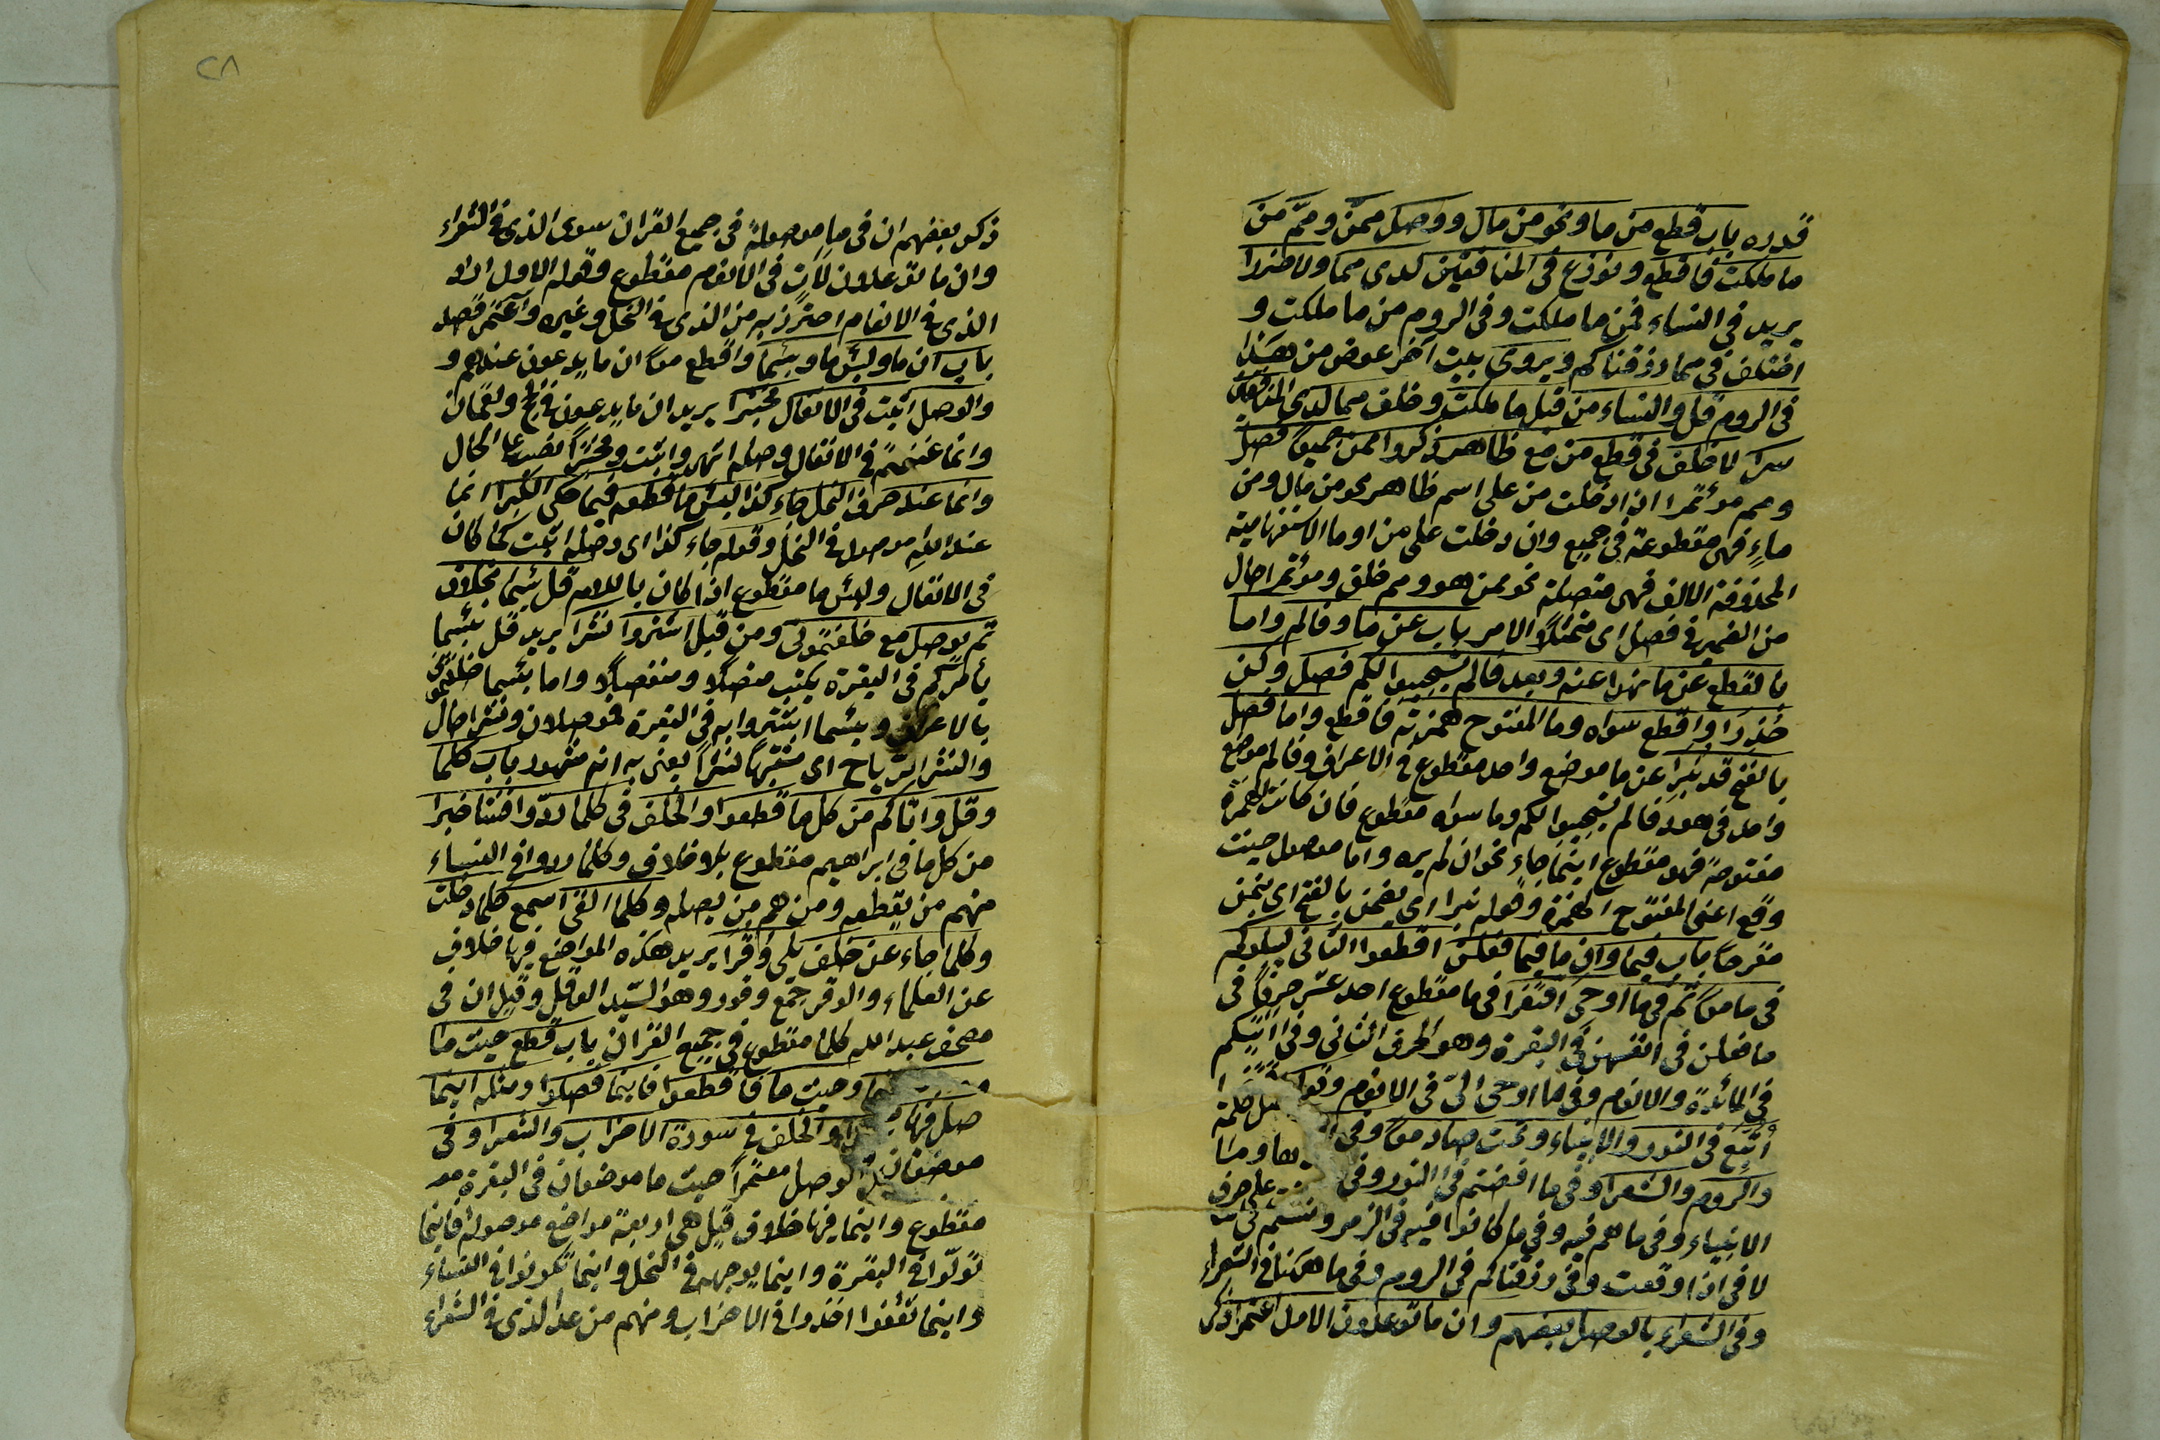 قدره باب قطع من ما ونحو من مال ووصل ممن ومم من
ما ملكت فاقطع ونوزع في المنافقين لدى مما ولا ضررا
يريد في النساء فمن ما ملكت وفي الروم من ما ملكت و
اختلف في مما رزقناكم ويروى بيت آخر عوض من هذا
في الروم قل والنساء من قبل ما ملكت وخلف مما لدى المنافقين
سرى لا خلف في قطع من مع ظاهر ذكروا ممن جميعا فصل
ومم مؤتمرا اذا دخلت من على اسم ظاهر نحو من مال ومن
ماء فهي مقطوعة في جميع وان دخلت على من او ما الاستفهامية
المحذوفة الالف فهي متصلة نحو ممن هو ومم خلق ومؤتمرا حال
من الضمير في فصل اي ممتثلا الامر باب عن ما وفالم واما
بالقطع عن ما نهوا عنه وبعد فالم يستجيبوا لكم فصل وكن
حذرا واقطع سواه وما المفتوح همزته فاقطع واما فصل
بالفتح قد نبرا عن ما موضع واحد مقطوع في الاعراف وفالم موضع
واحد في هود فالم يستجيبوا لكم وما سواه مقطوع فان كانت الهمزة
مفتوحة فهو مقطوع اينما جاء نحو ان لم يره واما موصول حيث
وقع اعني المفتوح الهمزة وقوله نبرا اي يفمن بالفتح اي
باب فيما وان ما فيما فعلن اقطعوا الثاني ليبلوكم
في ما معا ثم في ما اوحى اقتفرا في ما مقطوع احد عشر حرفا في
ما فعلن في انفسهن في البقرة وهو الحرف الثاني وفي ما اتيكم
في المائدة والانعم وفي ما اوحى الي في الانعم
في النور والانبياء وتحت صاد معا وفي
والروم والشعرا وفي ما افضتم في النور وفي على حرف
الانبياء وفي ما هم فيه وفي ما كانوا فيه في الزمر وننشئكم في
لا في اذا وقعت وفي رزقناكم في الروم وفي ما ههنا في الشعراء
وفي الشعراء بالوصل بعضهم وان ما توعدون الاول اعتمرا ذكر
ذكر بعضهم ان في ما موصولة في جميع القران سوى الذي في الشعراء
وان ما توعدون لات في الانعم مقطوع وقوله الاول اراد
الذي في الانعام احترز به من الذي في النحل وغيره واعتمر قصد
باب ان ما ولبئس ما وبئسما واقطع معا ان ما يدعون عندهم و
والوصل اثبت في الانفال مختبرا يريد ان ما يدعون في الحج ولقمان
وانما غنمتم في الانفال وصله اشهر واثبت ومختبرا نصب على الحال
وانما عند حرف النحل جاء كذا لبئس ما قطعه فيما حكى الكبرا انما
عند الله موصول في النحل وقوله جاء كذا اي وصله اثبت كما كان
في الانفال ولبئس ما مقطوع اذا كان باللام قل بئسما بخلاف
ثم يوصل مع خلفتموني ومن قبل اشتروا نشرا يريد قل بئسما
يأمركم في البقرة يكتب متصلا ومنفصلا واما بئسما خلفتموني
بالاعراف وبئسما اشتروا به في البقرة فموصولان ونشرا حال
والنشر الرياح اي مشبها نشرا يعني به انه مشهور باب كلما
وقل واتاكم من كل ما قطعوا والخلف في كلما ردوا فشا خبرا
من كل ما في ابراهيم مقطوع بلا خلاف وكلما ردوا في النساء
منهم من يقطعه ومن هم من يصله وكلما القي اسمع كلما دخلت
وكلما جاء عن خلف يلي وقرا يريد هذه المواضع فيها خلاف
عن العلماء والوقر جمع وقور وهو السيد العاقل وقيل ان في
مصحف عبد الله كلما مقطوع في جميع القران باب قطع حيث ما
وحيث ما فاقطعوا فاينما فصلوا ومثله اينما
والخلف في سورة الاحزاب والشعرا وفي
الوصل معتمرا حيث ما موضعان في البقرة
مقطوع واينما فيها خلاف قيل هي اربعة مواضع موصولة فاينما
تولوا في البقرة واينما يوجهه في النحل واينما تكونوا في النساء
واينما ثقفوا اخذوا في الاحزاب ومنهم من عد الذي في الشعراء
٢٨